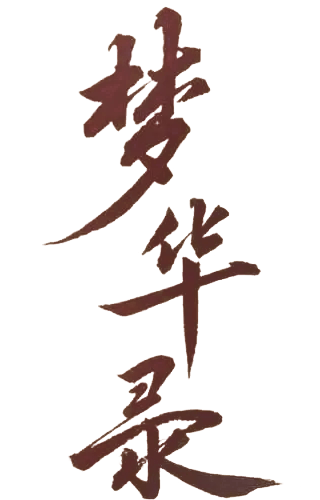 梦华录